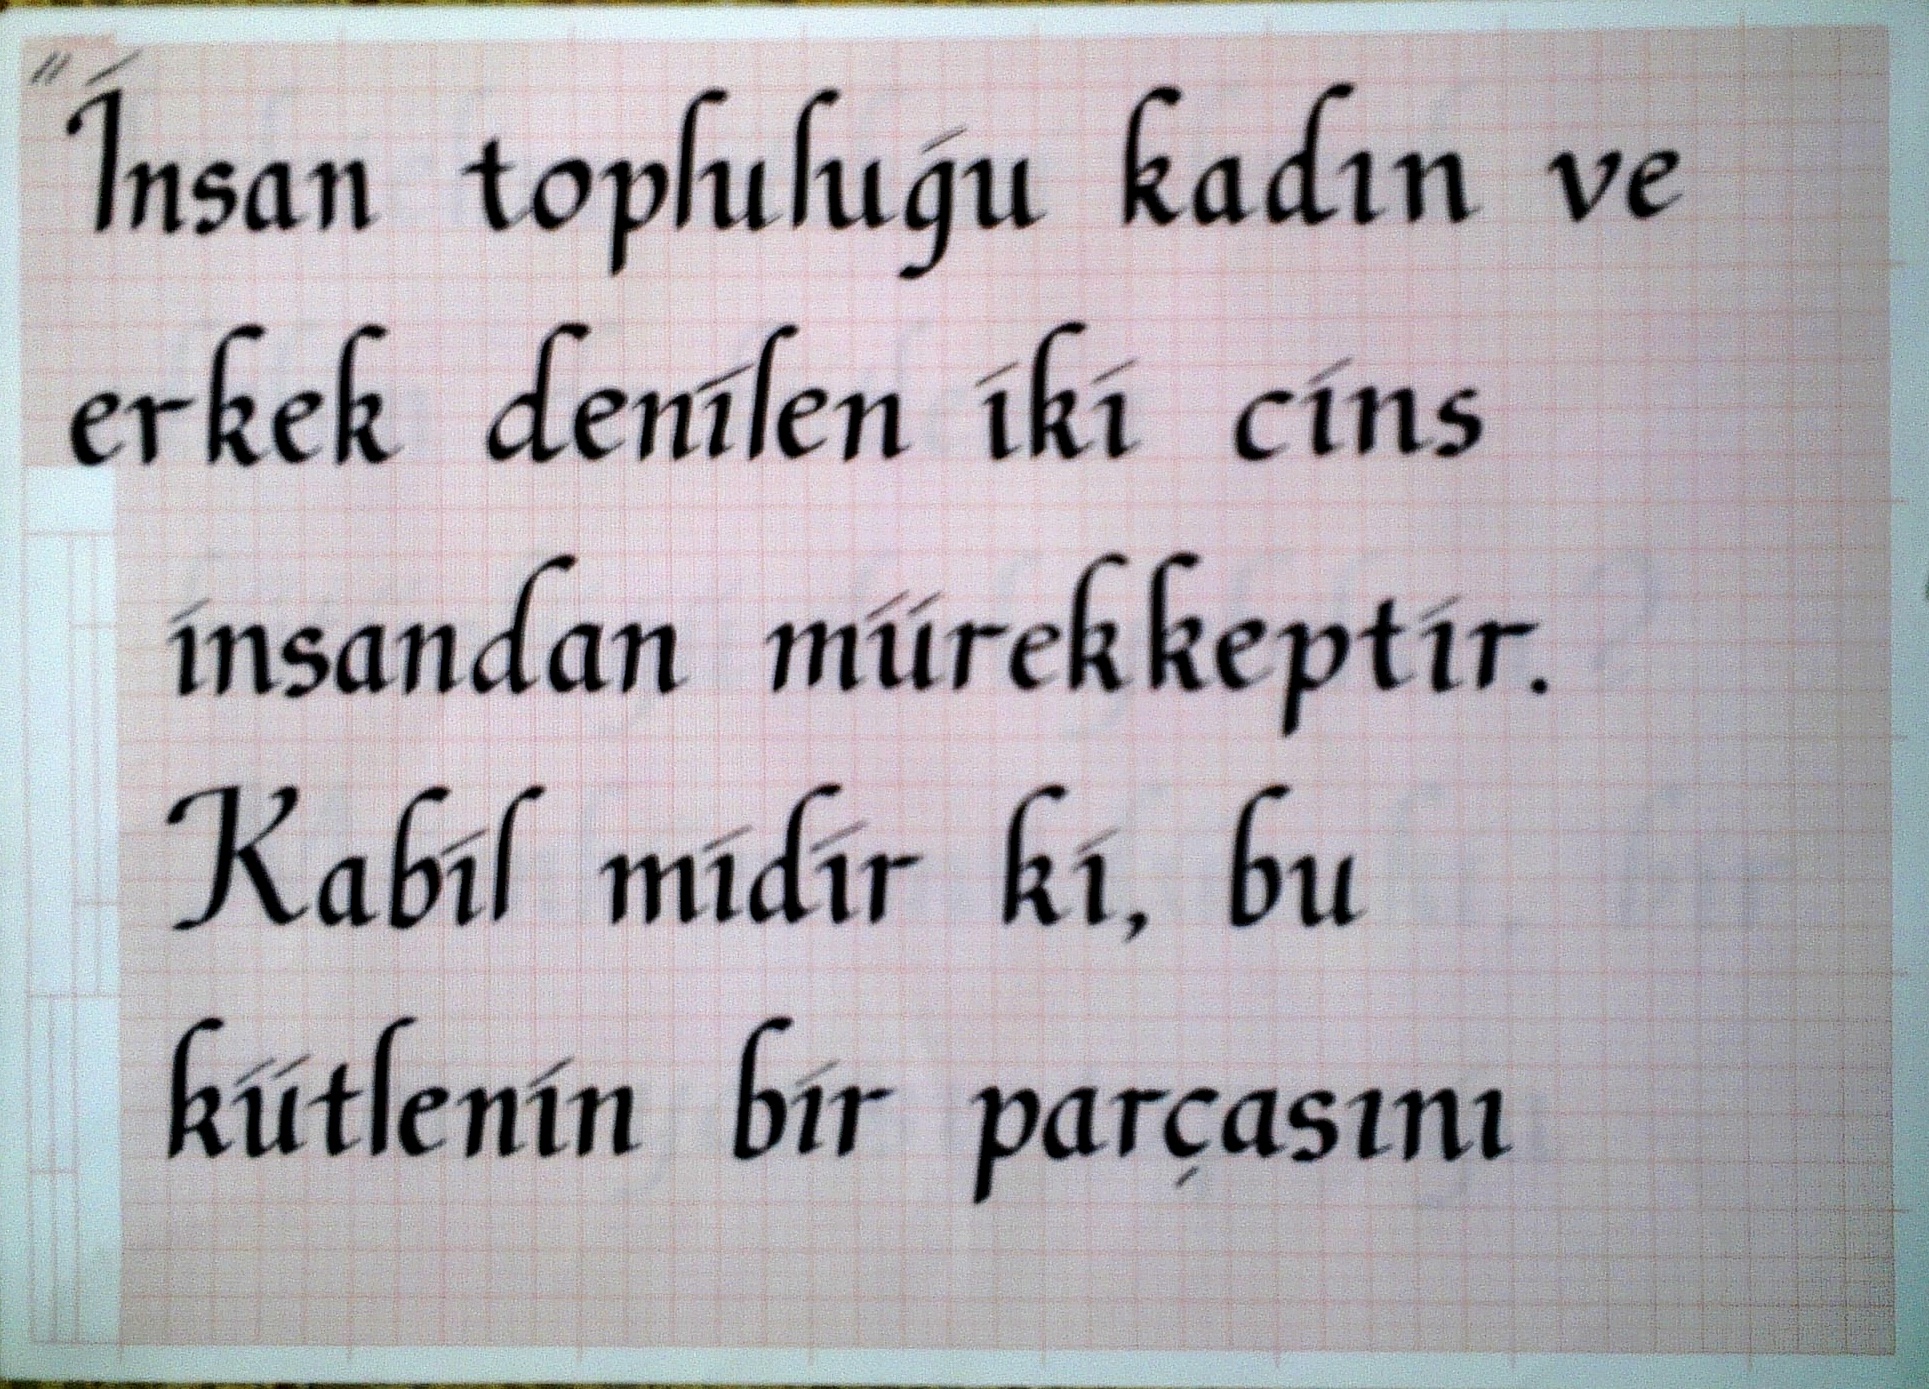 "İnsan topluluğu kadın ve
erkek denilen iki cins
insandan mürekkeptir.
Kabil midir ki, bu
kütlenin bir parçasını